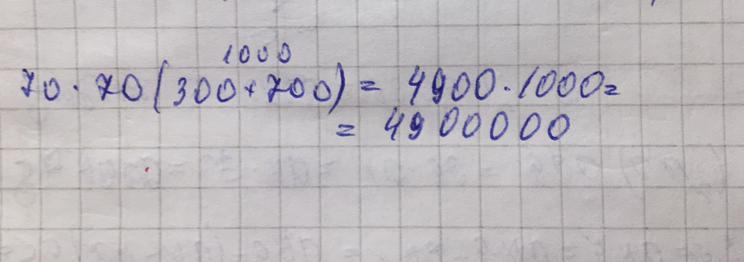 1000
70 · 70 (300 + 700) = 4900 · 1000 =
= 4900000